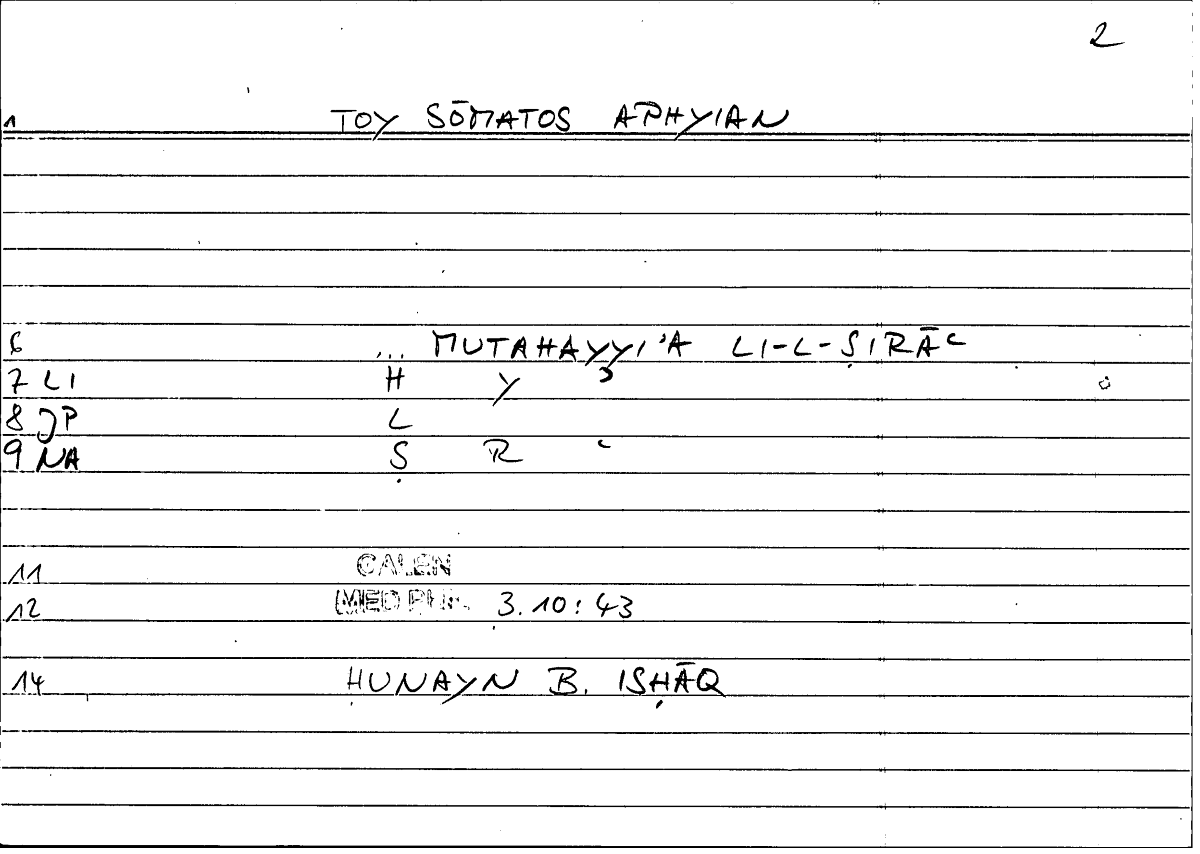 2
1 TOY SŌMATOS APHYIAN
6 ... MUTAHAYYI'A LI-L-ṢIRĀʿ
7 LI H Y ʾ
8 JP L
9 NA Ṣ R ʿ
11 GALEN
12 (MED PHIL. 3.10:43
14 ḤUNAYN B. ISḤĀQ